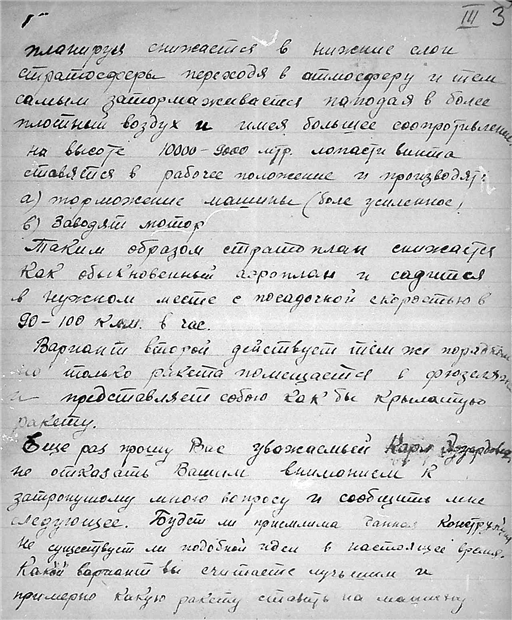 III 3
планируя снижается в нижние слои
стратосферы переходя в атмосферу и тем
самым затормаживается паподая в более
плотный воздух и имея большее соопротивление
на высоте 10000-9000 мтр. лопасти винта
ставятся в рабочее положение и производят:
а) торможение машины (боле усиленное)
в) Заводят мотор
Таким образом стратоплан снижается
как обыкновенный аэроплан и садится
в нужном месте с посадочной скоростью в
90-100 клм. в час.
Вариант второй действует тем же порядком
но только ракета помещается в фюзеляже
и представляет собою как бы крылатую
ракету.
Еще раз прошу Вас уважаемый Карл Эдуардович
не отказать Вашим вниманием к
затронутому мною вопросу и сообщить мне
следующее. Будет ли приемлима данная конструкция
Не существует ли подобной идеи в настоящее время.
Какой вариант вы считаете лучшим и
примерно какую ракету ставить на машину